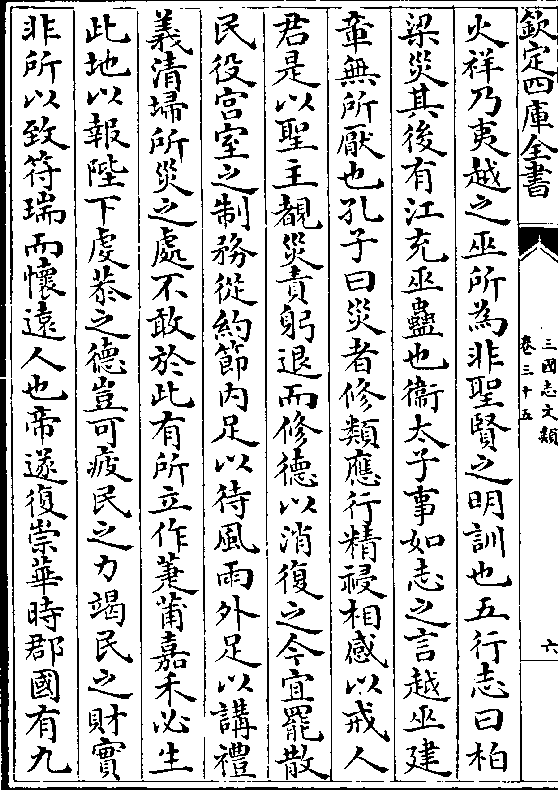 欽定四庫全書
三國志文類
卷三十五
六
火祥乃夷越之巫所為非聖賢之明訓也五行志曰柏
梁災其後有江充巫蠱也衞太子事如志之言越巫建
章無所厭也孔子曰災者修類應行精祲相感以戒人
君是以聖主覩災責躬退而修德以消復之今宜罷散
民役宫室之制務從約節内足以待風雨外足以講禮
義清埽所災之處不敢於此有所立作萐莆嘉禾必生
此地以報陛下虔恭之德豈可疲民之力竭民之財實
非所以致符瑞而懷遠人也帝遂復崇華時郡國有九